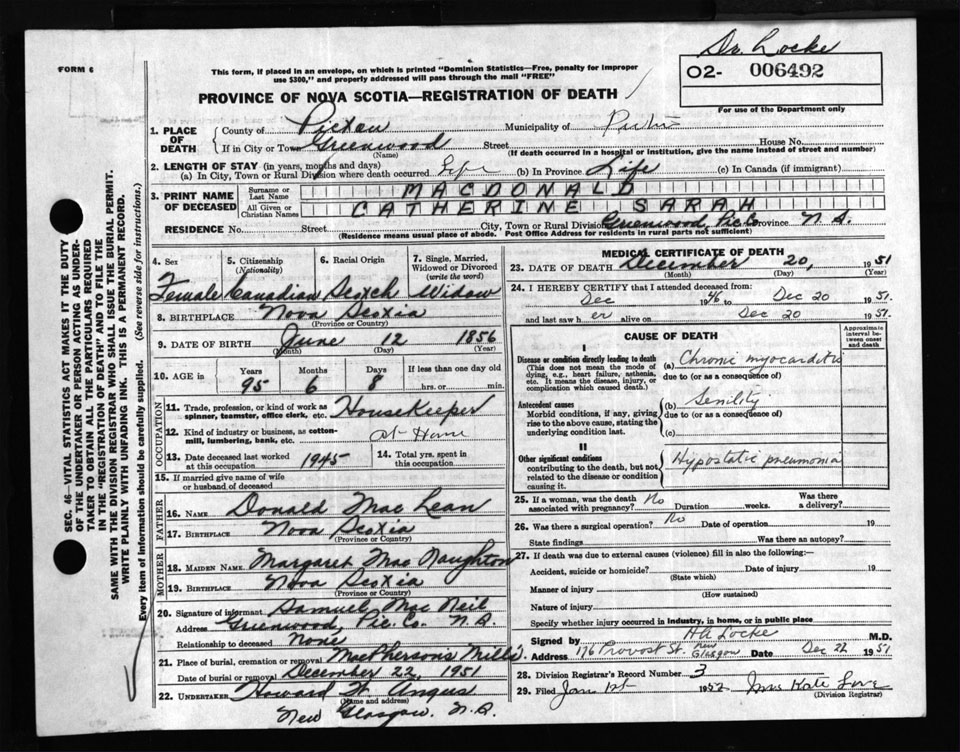 Dr. Locke
FORM 6
This form, if placed in an envelope, on which is printed "Dominion Statistics—Free, penalty for improper
use $300," and properly addressed will pass through the mail "FREE"
02- 006492
For use of the Department only
PROVINCE OF NOVA SCOTIA—REGISTRATION OF DEATH
1. PLACE OF DEATH
County of Pictou Municipality of Pictou
If in City or Town Greenwood Street House No.
(Name) (If death occurred in a hospital or institution, give the name instead of street and number)
2. LENGTH OF STAY (in years, months and days)
(a) In City, Town or Rural Division where death occurred Life (b) In Province Life (c) In Canada (if immigrant)
3. PRINT NAME OF DECEASED
Surname or Last Name MACDONALD
All Given or Christian Names CATHERINE SARAH
RESIDENCE No. Street City, Town or Rural Division Greenwood, Pic Co Province N.S.
(Residence means usual place of abode. Post Office Address for residents in rural parts not sufficient)
SEC. 46—VITAL STATISTICS ACT MAKES IT THE DUTY
OF THE UNDERTAKER OR PERSON ACTING AS UNDER-
TAKER TO OBTAIN ALL THE PARTICULARS REQUIRED
IN THE "REGISTRATION OF DEATH" AND TO FILE THE
SAME WITH THE DIVISION REGISTRAR WHO SHALL ISSUE THE BURIAL PERMIT.
WRITE PLAINLY WITH UNFADING INK. THIS IS A PERMANENT RECORD.
Every item of information should be carefully supplied. (See reverse side for instructions.)
4. Sex
5. Citizenship (Nationality)
6. Racial Origin
7. Single, Married, Widowed or Divorced (write the word)
Female Canadian Scotch Widow
8. BIRTHPLACE Nova Scotia
(Province or Country)
9. DATE OF BIRTH June 12 1856
(Month) (Day) (Year)
10. AGE in
Years Months Days If less than one day old
95 6 8 hrs. or min.
OCCUPATION
11. Trade, profession, or kind of work as spinner, teamster, office clerk, etc. HouseKeeper
12. Kind of industry or business, as cotton-mill, lumbering, bank, etc. at Home
13. Date deceased last worked at this occupation 1945
14. Total yrs. spent in this occupation
15. If married give name of wife or husband of deceased
FATHER
16. NAME Donald Mac Lean
17. BIRTHPLACE Nova Scotia
(Province or Country)
MOTHER
18. MAIDEN NAME Margaret Mac Naughton
19. BIRTHPLACE Nova Scotia
(Province or Country)
20. Signature of informant Samuel Mac Neil
Address Greenwood, Pic. Co. N.S.
Relationship to deceased None
21. Place of burial, cremation or removal MacPhersons Mills.
Date of burial or removal December 22, 1951
22. UNDERTAKER Howard W. Angus
(Name and address)
New Glasgow. N.S.
MEDICAL CERTIFICATE OF DEATH
23. DATE OF DEATH December 20, 1951
(Month) (Day) (Year)
24. I HEREBY CERTIFY that I attended deceased from:
Dec 1946 to Dec 20 1951.
and last saw her alive on Dec 20 1951.
CAUSE OF DEATH
Approximate interval between onset and death
I
Disease or condition directly leading to death
(This does not mean the mode of
dying, e.g., heart failure, asthenia,
etc. It means the disease, injury, or
complication which caused death.)
(a) Chronic myocarditis
due to (or as a consequence of)
Antecedent causes
Morbid conditions, if any, giving
rise to the above cause, stating the
underlying condition last.
(b) Senility
due to (or as a consequence of)
(c)
II
Other significant conditions
contributing to the death, but not
related to the disease or condition
causing it.
Hypostatic pneumonia
25. If a woman, was the death associated with pregnancy? No Duration weeks. Was there a delivery?
26. Was there a surgical operation? No Date of operation 19
State findings Was there an autopsy?
27. If death was due to external causes (violence) fill in also the following:—
Accident, suicide or homicide? Date of injury 19
(State which)
Manner of injury
(How sustained)
Nature of injury
Specify whether injury occurred in industry, in home, or in public place
Signed by HA Locke M.D.
Address 176 Provost St. New Glasgow Date Dec 22 1951
28. Division Registrar's Record Number 3
29. Filed Jan 1st 1952 Mrs Kate Love
(Division Registrar)